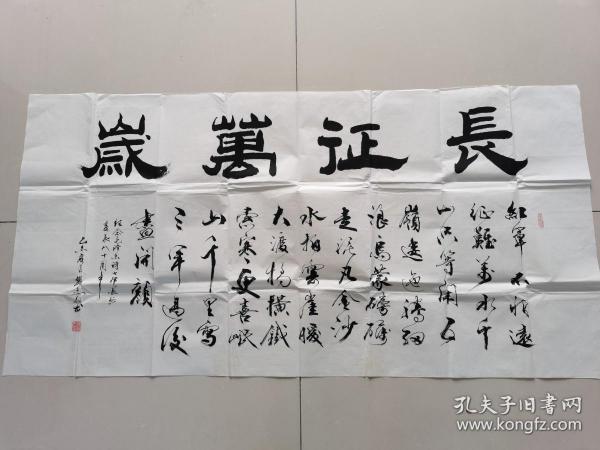 長征萬歲
紅軍不怕遠
征難萬水千
山只等閑五
嶺逶迤騰細
浪烏蒙磅礴
走泥丸金沙
水拍雲崖暖
大渡橋橫鐵
索寒更喜岷
山千里雪
三軍過後
盡開顏
紀念毛澤東詩七律長征
發表八十周年
孔夫子旧書网
www.kongfz.com